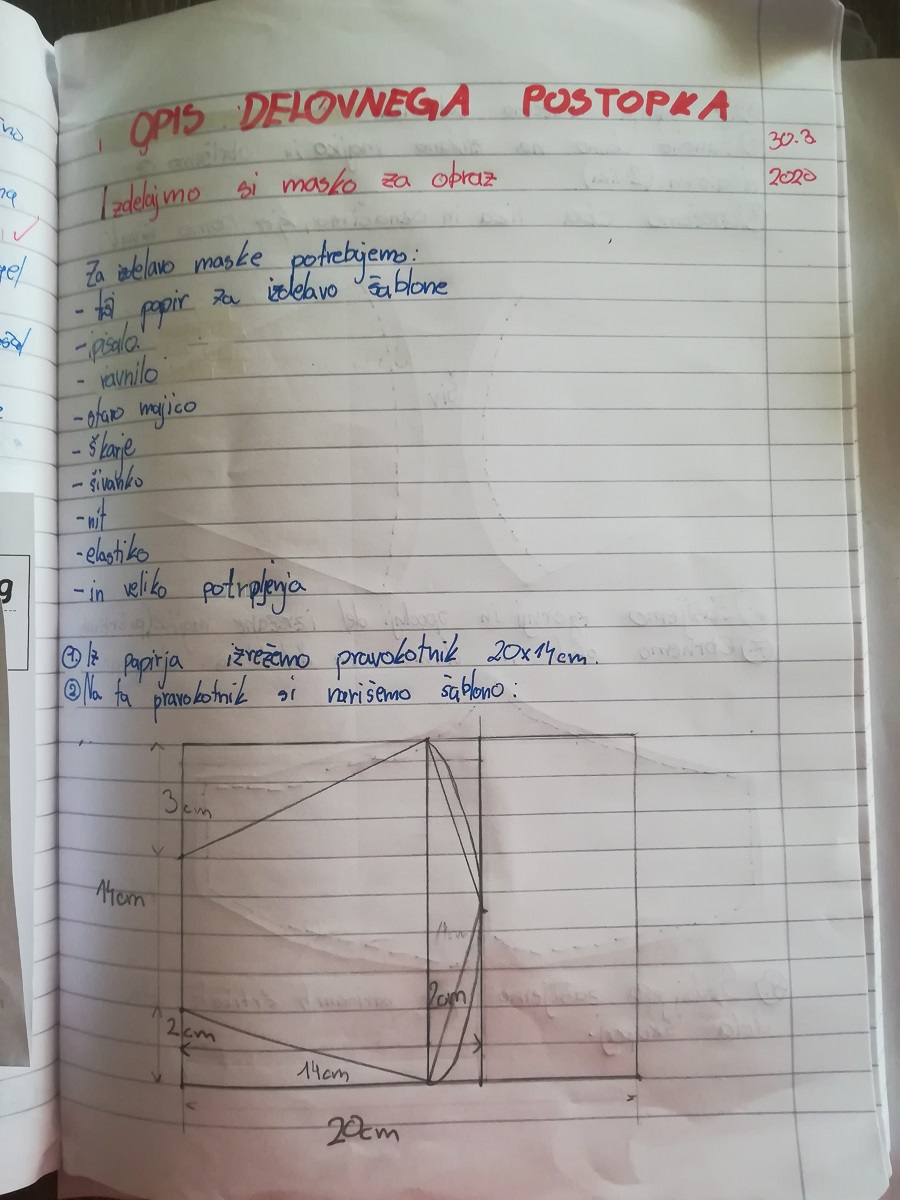 OPIS DELOVNEGA POSTOPKA
30.3
2020
Izdelajmo si masko za obraz
Za izdelavo maske potrebujemo:
- papir za izdelavo šablone
- pisalo
- ravnilo
- staro majico
- škarje
- šivanko
- nit
- elastiko
- in veliko potrpljenja
① Iz papirja izrežemo pravokotnik 20x14cm.
② Na ta pravokotnik si narišemo šablono:
3cm
14cm
2cm
2cm
14cm
20cm